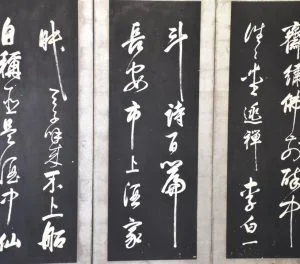 齋繡佛前醉中
往往愛逃禪李白一
斗詩百篇
長安市上酒家
眠天子呼來不上船
自稱臣是酒中仙